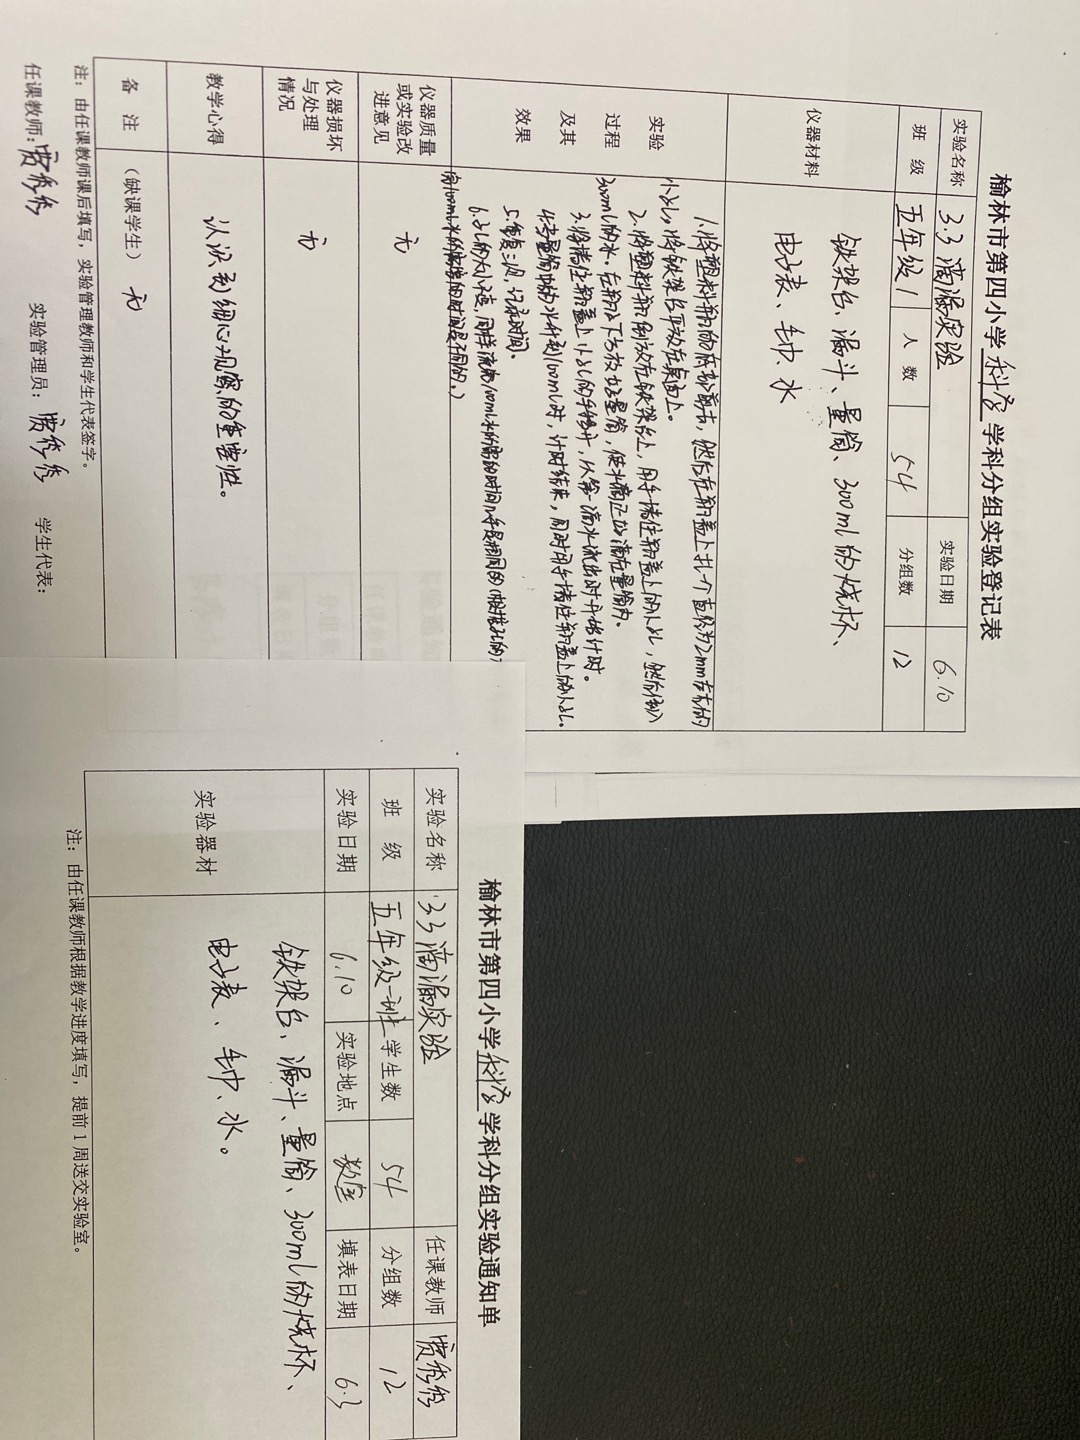 榆林市第四小学科学学科分组实验登记表
实验名称 3.3 滴漏实验 实验日期 6.10
班 级 五年级1 人 数 54 分组数 12
仪器材料
铁架台、漏斗、量筒、300ml的烧杯、
电子表、毛巾、水
实验
过程
及其
效果
1.将塑料瓶的底部剪去，然后在瓶盖上扎个直径为2mm左右的
小孔，将铁架台平放在桌面上。
2.将塑料瓶倒放在铁架台上，用手堵住瓶盖上的小孔，然后倒入
300ml的水。在瓶口下方放好量筒，使水滴正好滴在量筒内。
3.将堵住瓶盖上小孔的手移开，从第一滴水流出时开始计时。
4.当量筒中的水升到100ml时，计时结束，同时用手堵住瓶盖上的小孔。
5.重复三次，记录时间。
6.孔的大小不变，同样流完100ml水所需的时间几乎是相同的
需100ml水所需的时间是不同的。)
仪器质量
或实验改
进意见
无
仪器损坏
与处理
情况
无
教学心得
认识到细心观察的重要性。
备 注 (缺课学生) 无
注：由任课教师课后填写，实验管理教师和学生代表签字。
任课教师：贾秀秀 实验管理员：贾秀秀 学生代表：
榆林市第四小学科学学科分组实验通知单
实验名称 3.3滴漏实验 任课教师 贾秀秀
班 级 五年级一班 学生数 54 分组数 12
实验日期 6.10 实验地点 教室 填表日期 6.3
实验器材
铁架台、漏斗、量筒、300ml的烧杯、
电子表、毛巾、水。
注：由任课教师根据教学进度填写，提前1周送交实验室。